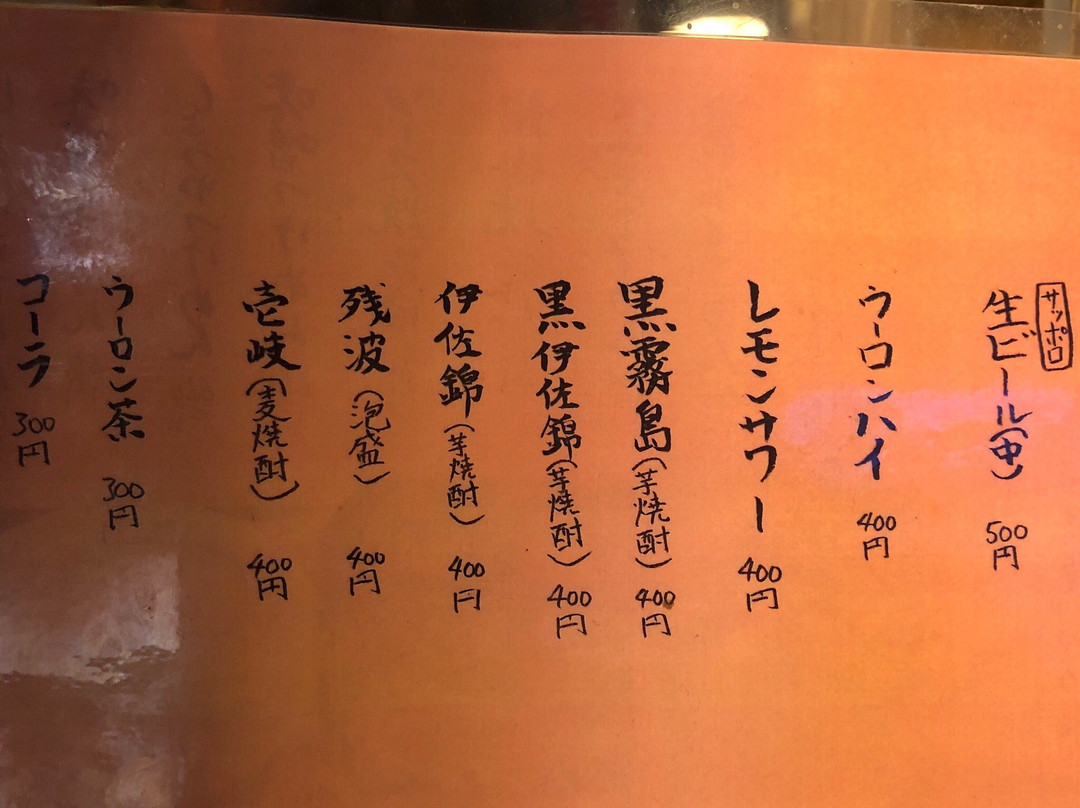 サッポロ
生ビール(中) 500円
ウーロンハイ 400円
レモンサワー 400円
黒霧島(芋焼酎) 400円
黒伊佐錦(芋焼酎) 400円
伊佐錦(芋焼酎) 400円
残波(泡盛) 400円
壱岐(麦焼酎) 400円
ウーロン茶 300円
コーラ 300円